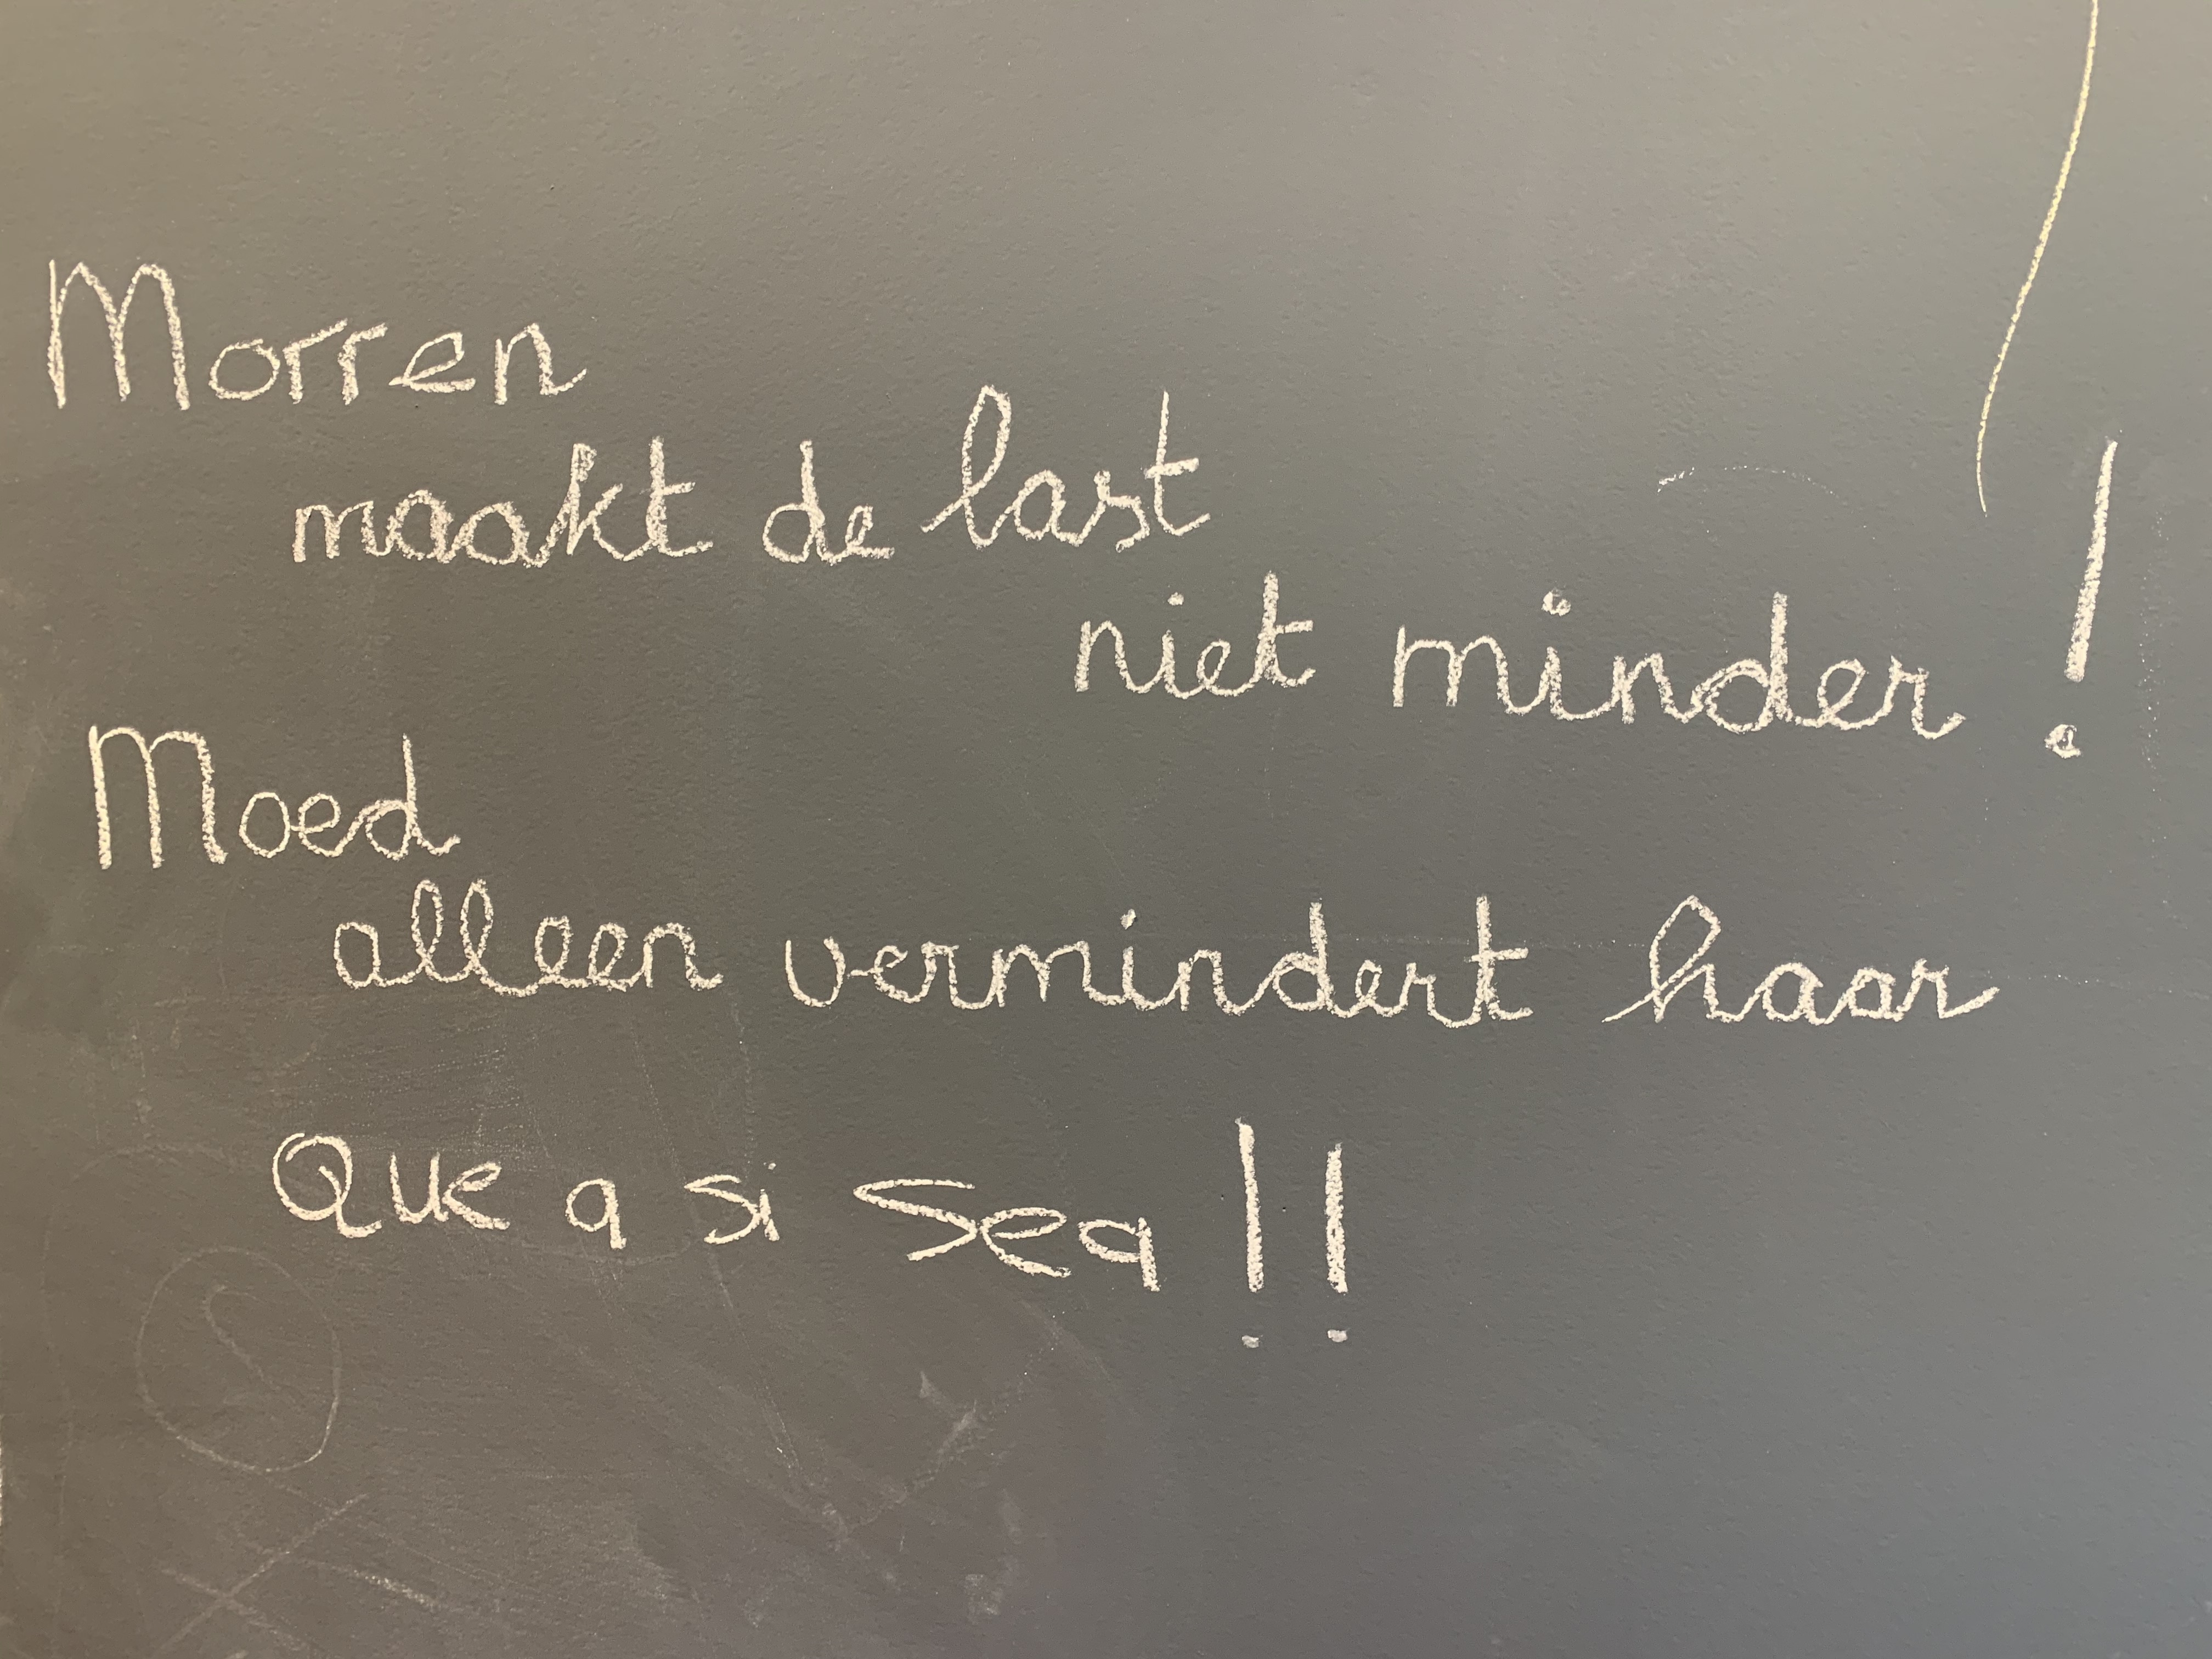 Morren
maakt de last
niet minder!
Moed
alleen vermindert haar
Que a si sea!!